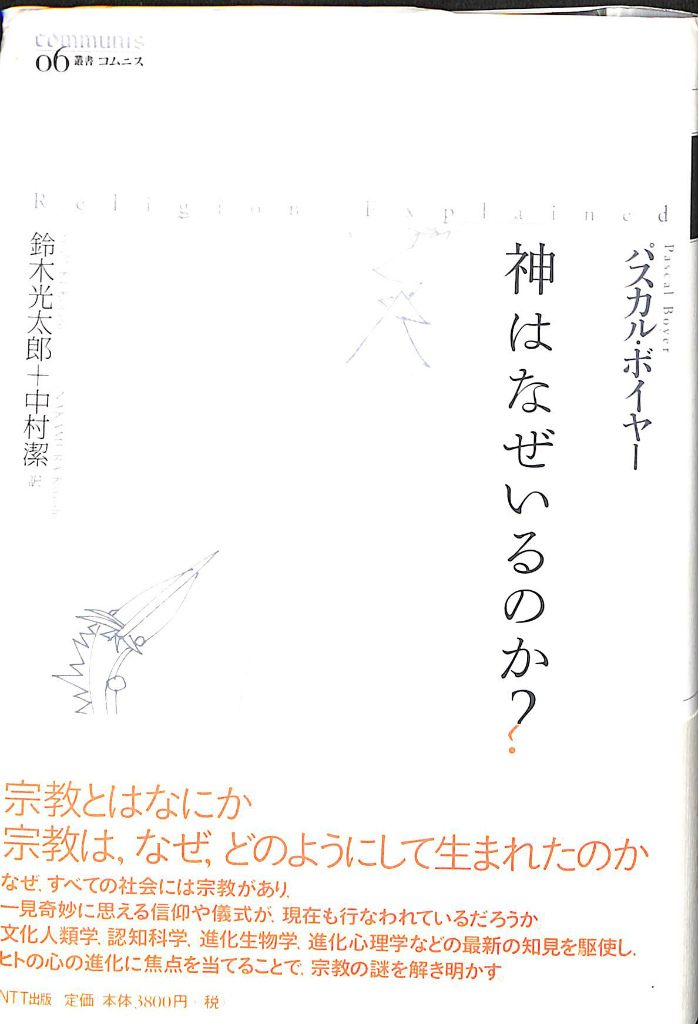 communis
06 叢書 コムニス
Religion Explained
Pascal Boyer
パスカル・ボイヤー
神はなぜいるのか?
鈴木光太郎+中村潔 訳
宗教とはなにか
宗教は,なぜ,どのようにして生まれたのか
なぜ,すべての社会には宗教があり,
一見奇妙に思える信仰や儀式が,現在も行なわれているだろうか
文化人類学,認知科学,進化生物学,進化心理学などの最新の知見を駆使し,
ヒトの心の進化に焦点を当てることで,宗教の謎を解き明かす
NTT出版 定価 本体 3800円+税